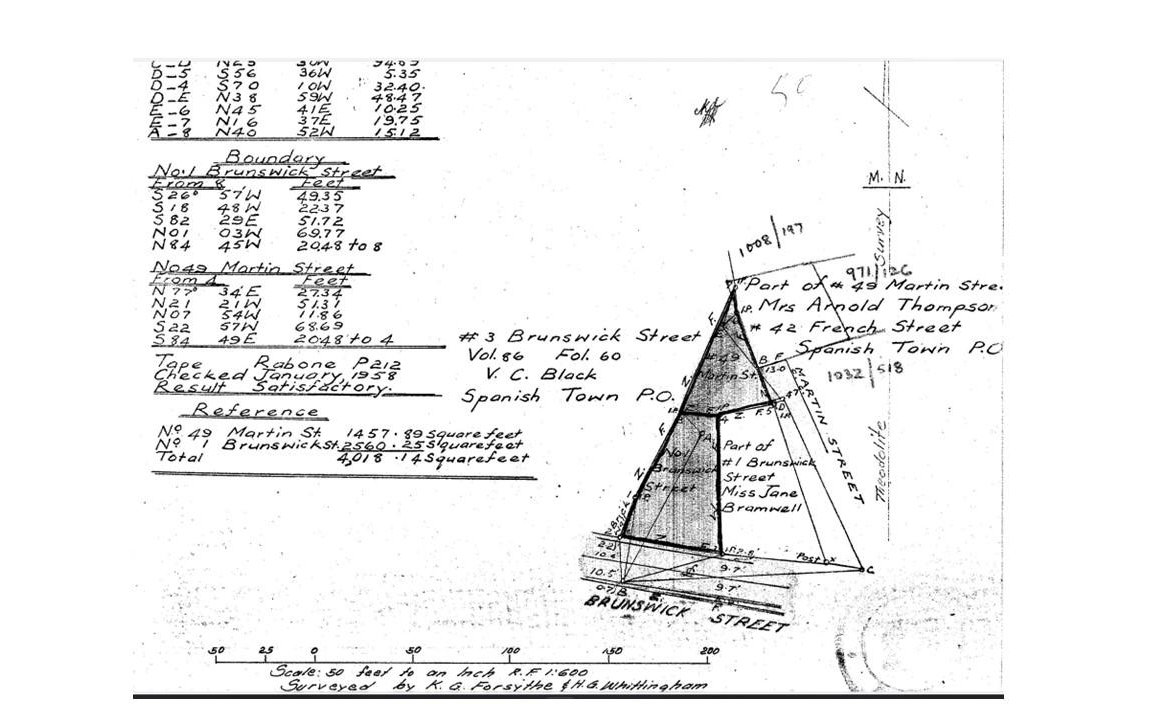 D-5 S56 36W 5.35
D-4 S70 10W 32.40
D-E N38 59W 48.47
E-6 N45 41E 10.25
E-7 N16 37E 19.75
A-8 N40 52W 15.12
Boundary
No.1 Brunswick Street
From 8 Feet
S26° 57W 49.35
S18 48W 22.37
S82 29E 51.72
N01 03W 69.77
N84 45W 20.48 to 8
No49 Martin Street
From 4 Feet
N77° 34E 27.34
N21 21W 51.31
N07 54W 11.86
S22 57W 68.69
S84 49E 20.48 to 4
Tape Rabone P212
Checked January, 1958
Result Satisfactory.
Reference
No 49 Martin St. 1457.89 Square feet
No 1 Brunswick St. 2560.25 Square feet
Total 4,018.14 Square feet
M. N.
Survey
Theodolite
1008/197
971/126
Part of # 49 Martin Stre
Mrs Arnold Thompson
# 42 French Street
Spanish Town P.O
1032/518
# 3 Brunswick Street
Vol. 86 Fol. 60
V. C. Black
Spanish Town P.O.
#49
Martin St.
MARTIN STREET
No 1
Brunswick
Street
Part of
#1 Brunswick
Street
Miss Jane
Bramwell
Post X
C
10.5'
9.7'
9.7'
BRUNSWICK STREET
50 25 0 50 100 150 200
Scale: 50 feet to an Inch R.F 1:600
Surveyed by K.G. Forsythe & H.G. Whittingham